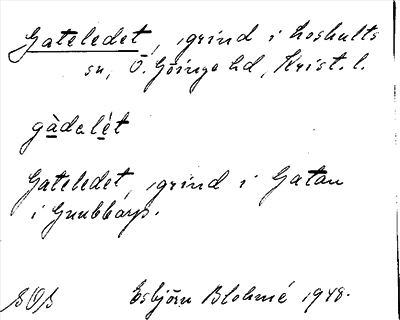 Gateledet, grind i Loshults
sn, Ö. Göinge hd, Krist. l.
gàdelét
Gateledet, grind i Gatan
i Gnubbarp.
SOS Esbjörn Blohmé 1948.